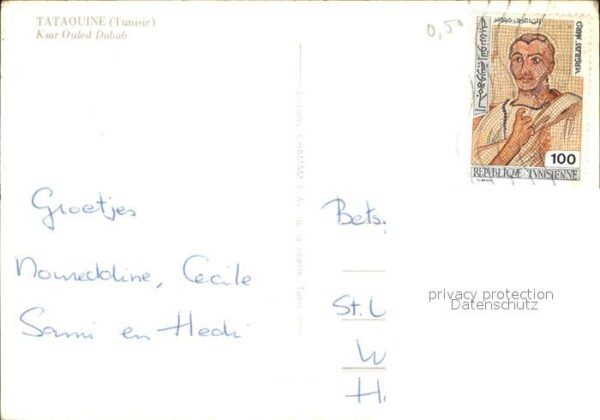 TATAOUINE (Tunisie)
Ksar Ouled Dabab
0,50
VIRGILIUS MARO
الجمهورية التونسية
100
REPUBLIQUE TUNISIENNE
Editions CHAMAM 5, Av. de la liberté Tunis
Groetjes
Noureddine, Cecile
Sami en Hedi
Bets
St.
privacy protection
Datenschutz
W
H.